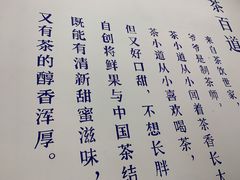 茶百道
来自茶饮世家
爷爷是制茶师，
茶小道从小闻着茶香长大
茶小道从小喜欢喝茶，
但又好口甜，不想长胖
自创将鲜果与中国茶结
既能有清新甜蜜滋味，
又有茶的醇香浑厚。